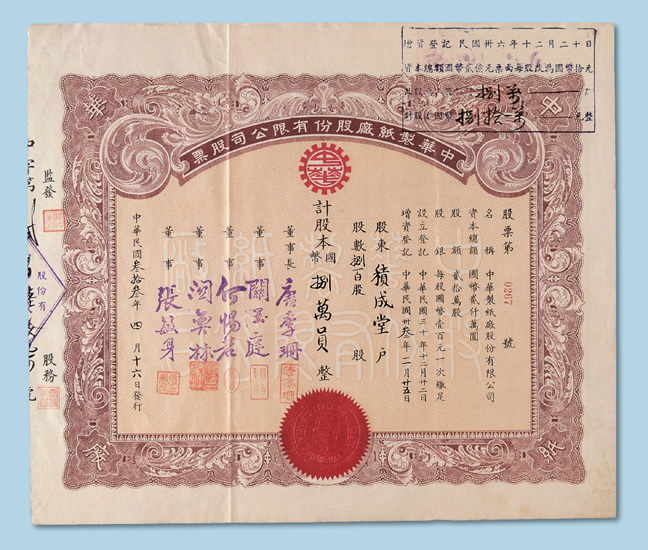 增資登記民國卅六年十二月二十日
資本總額國幣貳億元票面每股改為國幣拾元
捌萬
捌拾萬 元整
中華製紙廠股份有限公司股票
中
華
紙
廠
股票第 0267 號
名稱 中華製紙廠股份有限公司
資本總額 國幣貳仟萬圓
股額 貳拾萬股
股銀 每股國幣壹百元一次繳足
設立登記 中華民國三十年十二月廿二日
增資登記 中華民國卅叁年二月廿五日
股東 積成堂 戶
股數 捌百股 股
計股本國幣 捌萬員 整
董事長
董事
董事
董事
董事 張
中華民國叁拾叁年四月十六日發行
監發
股務
股份有